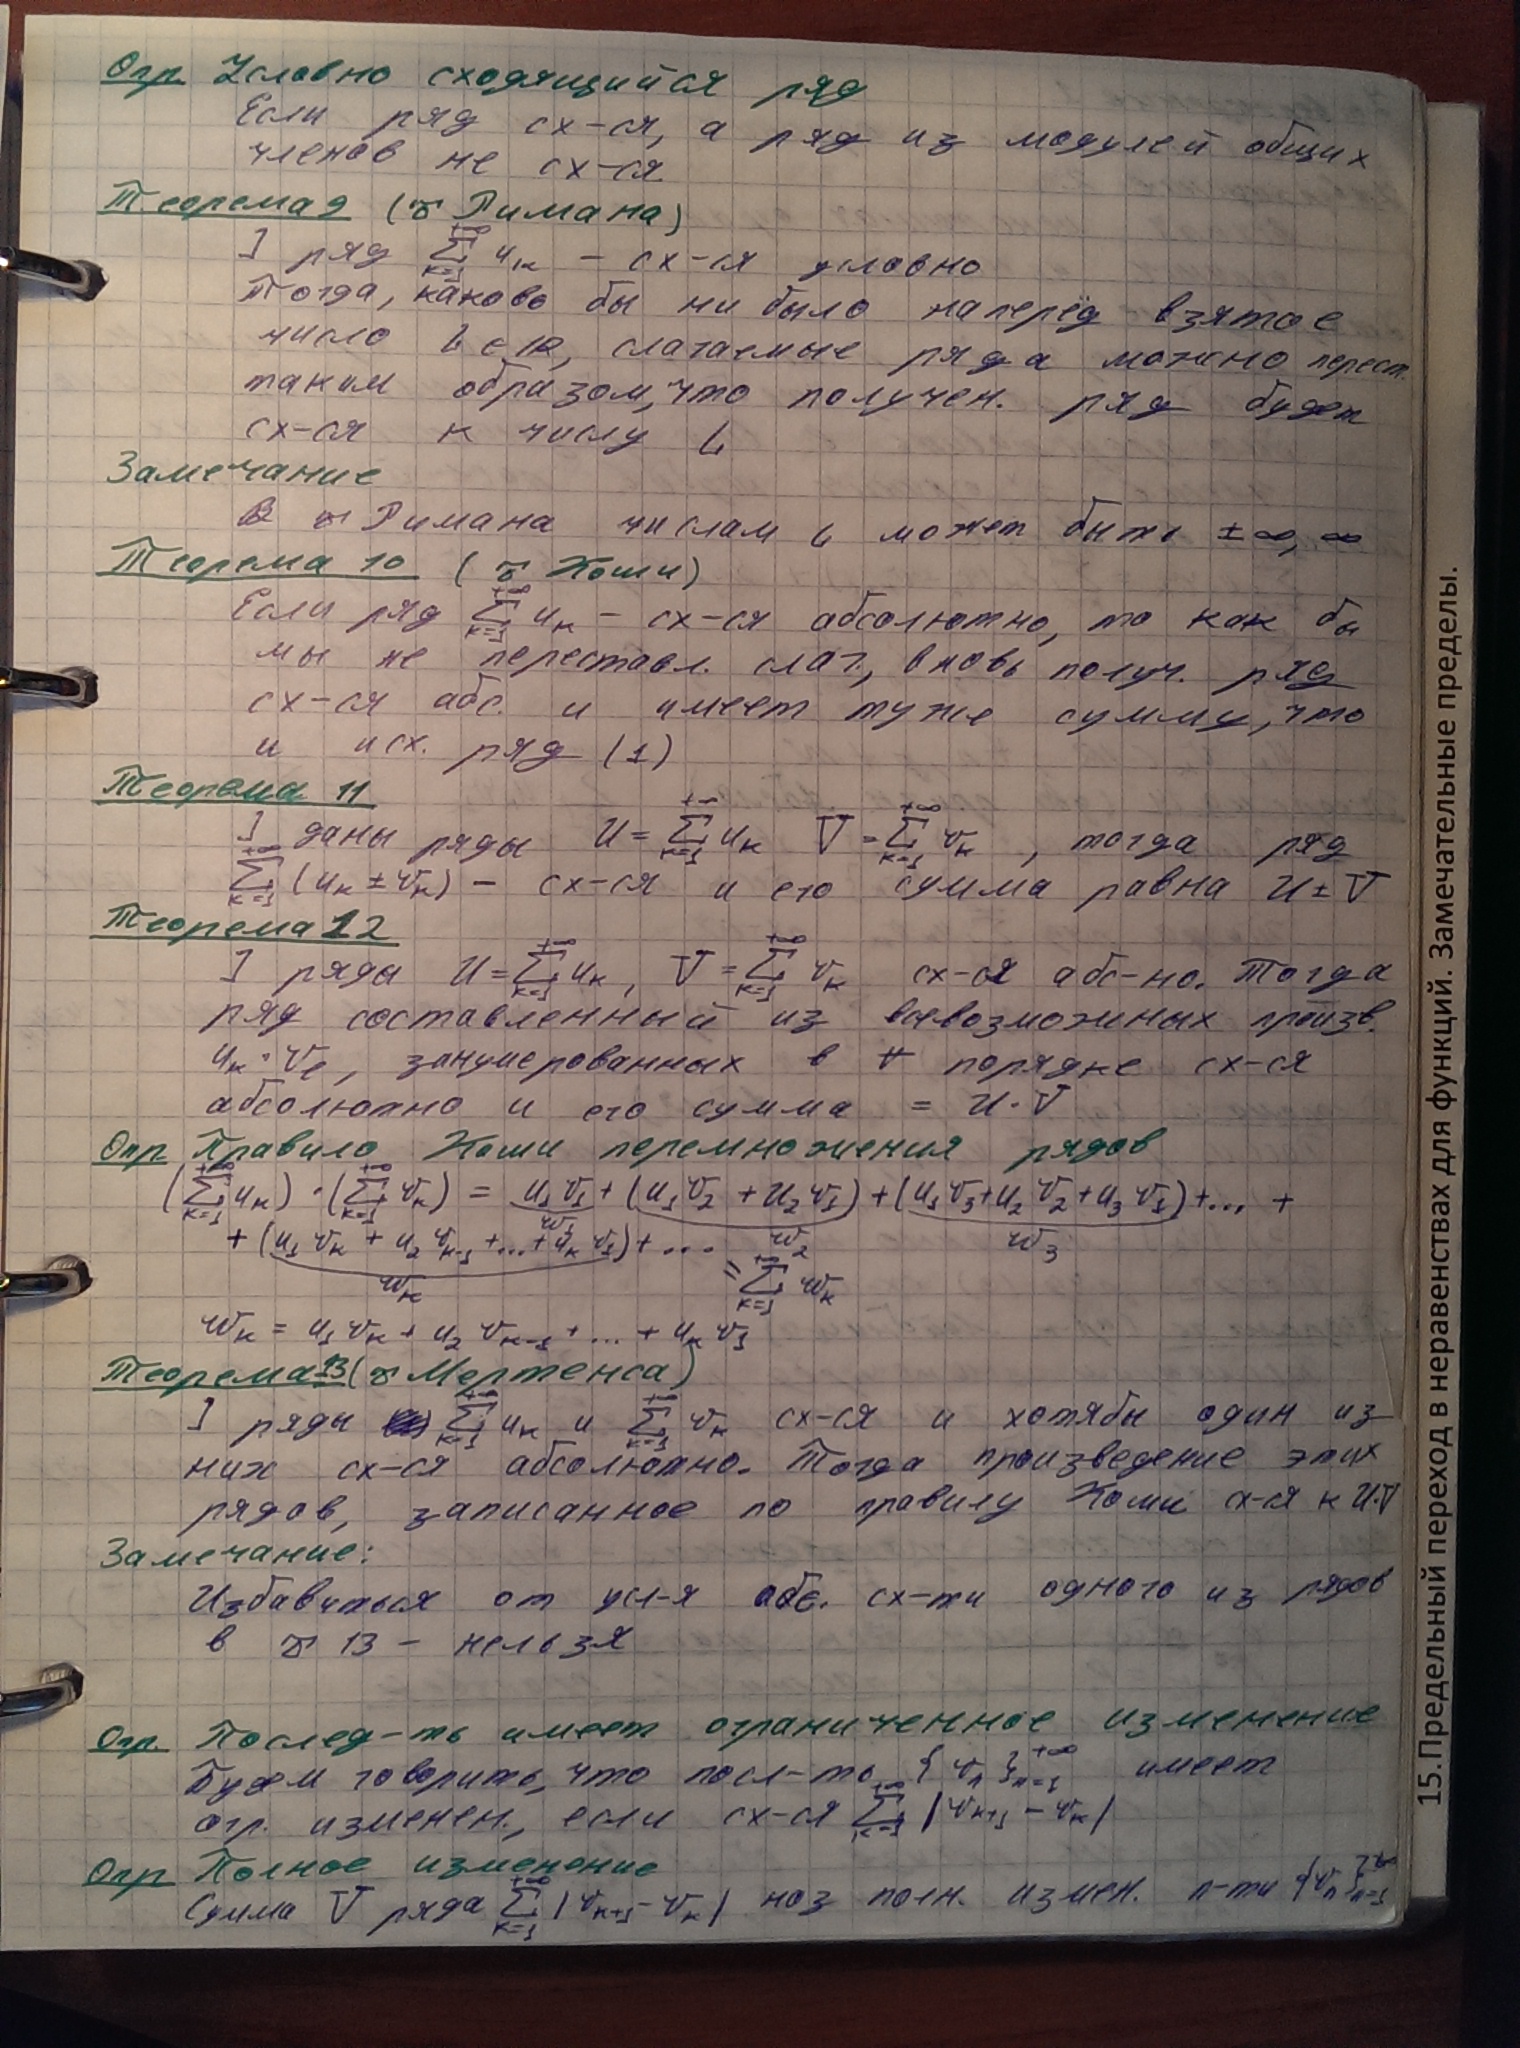 Опр Условно сходящийся ряд
Если ряд сх-ся, а ряд из модулей общих
членов не сх-ся
Теорема 9 (т Римана)
] ряд \sum_{k=1}^{+∞} u_k – сх-ся условно
Тогда, каково бы ни было наперёд взятое
число L ∈ ℝ, слагаемые ряда можно перест.
таким образом, что получен. ряд будет
сх-ся к числу L
Замечание
В т Римана числам L может быть ±∞, ∞
Теорема 10 (т Коши)
Если ряд \sum_{k=1}^{+∞} u_k – сх-ся абсолютно, то как бы
мы не переставл. слаг., вновь получ. ряд
сх-ся абс. и имеет ту же сумму, что
и исх. ряд (1)
Теорема 11
] даны ряды U = \sum_{k=1}^{+∞} u_k V = \sum_{k=1}^{+∞} v_k , тогда ряд
\sum_{k=1}^{+∞} (u_k ± v_k) – сх-ся и его сумма равна U ± V
Теорема 12
] ряды U = \sum_{k=1}^{+∞} u_k, V = \sum_{k=1}^{+∞} v_k сх-ся абс-но. Тогда
ряд составленный из всевозможных произв.
u_k · v_e, занумерованных в ∀ порядке сх-ся
абсолютно и его сумма = U · V
Опр Правило Коши перемножения рядов
(\sum_{k=1}^{+∞} u_k) · (\sum_{k=1}^{+∞} v_k) = u_1 v_1 + (u_1 v_2 + u_2 v_1) + (u_1 v_3 + u_2 v_2 + u_3 v_1) + ... +
w_1 w_2 w_3
+ (u_1 v_k + u_2 v_{k-1} + ... + u_k v_1) + ...
w_k = \sum_{k=1}^{+∞} w_k
w_k = u_1 v_k + u_2 v_{k-1} + ... + u_k v_1
Теорема 13 (т Мертенса)
] ряды \sum_{k=1}^{+∞} u_k и \sum_{k=1}^{+∞} v_k сх-ся и хотябы один из
них сх-ся абсолютно. Тогда произведение этих
рядов, записанное по правилу Коши сх-ся к U·V
Замечание:
Избавиться от усл-я абс. сх-ти одного из рядов
в т 13 – нельзя
Опр. Послед-ть имеет ограниченное изменение
Будем говорить, что посл-ть {v_n}_{n=1}^{+∞} имеет
огр. изменен., если сх-ся \sum_{k=1}^{+∞} |v_{k+1} – v_k|
Опр Полное изменение
Сумма V ряда \sum_{k=1}^{+∞} |v_{k+1} – v_k| наз полн. измен. п-ти {v_n}_{n=1}^{+∞}
15.Предельный переход в неравенствах для функций. Замечательные пределы.